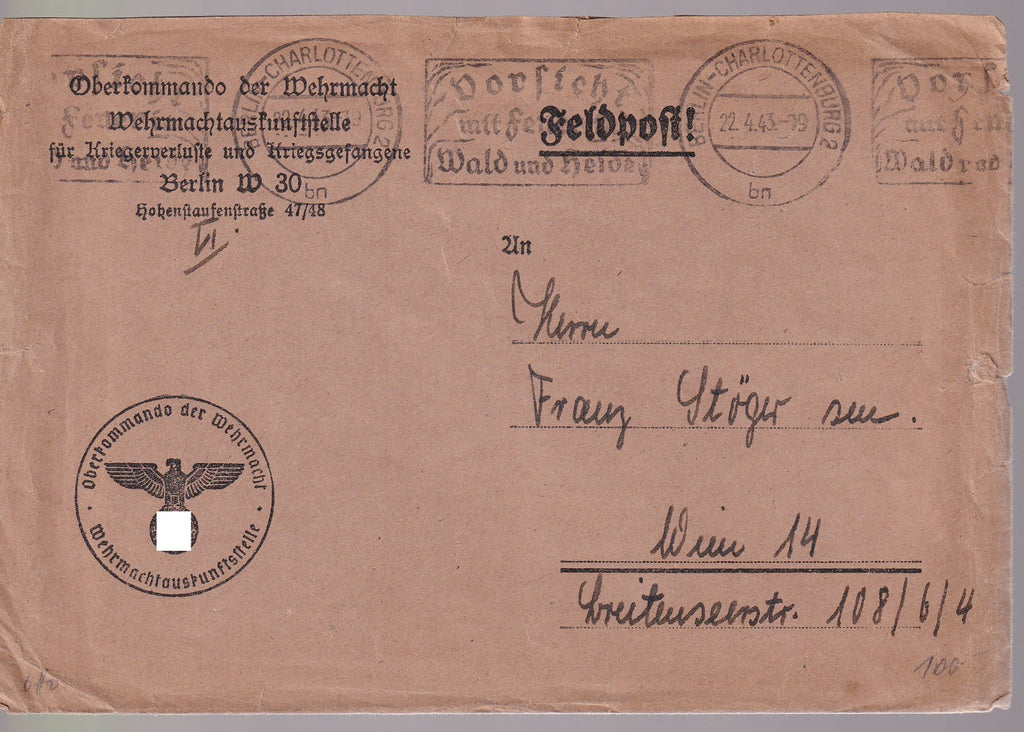 Oberkommando der Wehrmacht
Wehrmachtauskunftstelle
für Kriegerverluste und Kriegsgefangene
Berlin W 30
Hohenstaufenstraße 47/48
VI.
BERLIN-CHARLOTTENBURG 2
22.4.43.-09
bn
Vorsicht
mit Fe
Wald und Heide
Feldpost!
BERLIN-CHARLOTTENBURG 2
22.4.43.-09
bn
Vors
mit Feu
Wald
An
Herrn
Franz Stöger sen.
Wien 14
Breitenseerstr. 108/6/4
Oberkommando der Wehrmacht
Wehrmachtauskunftstelle
100